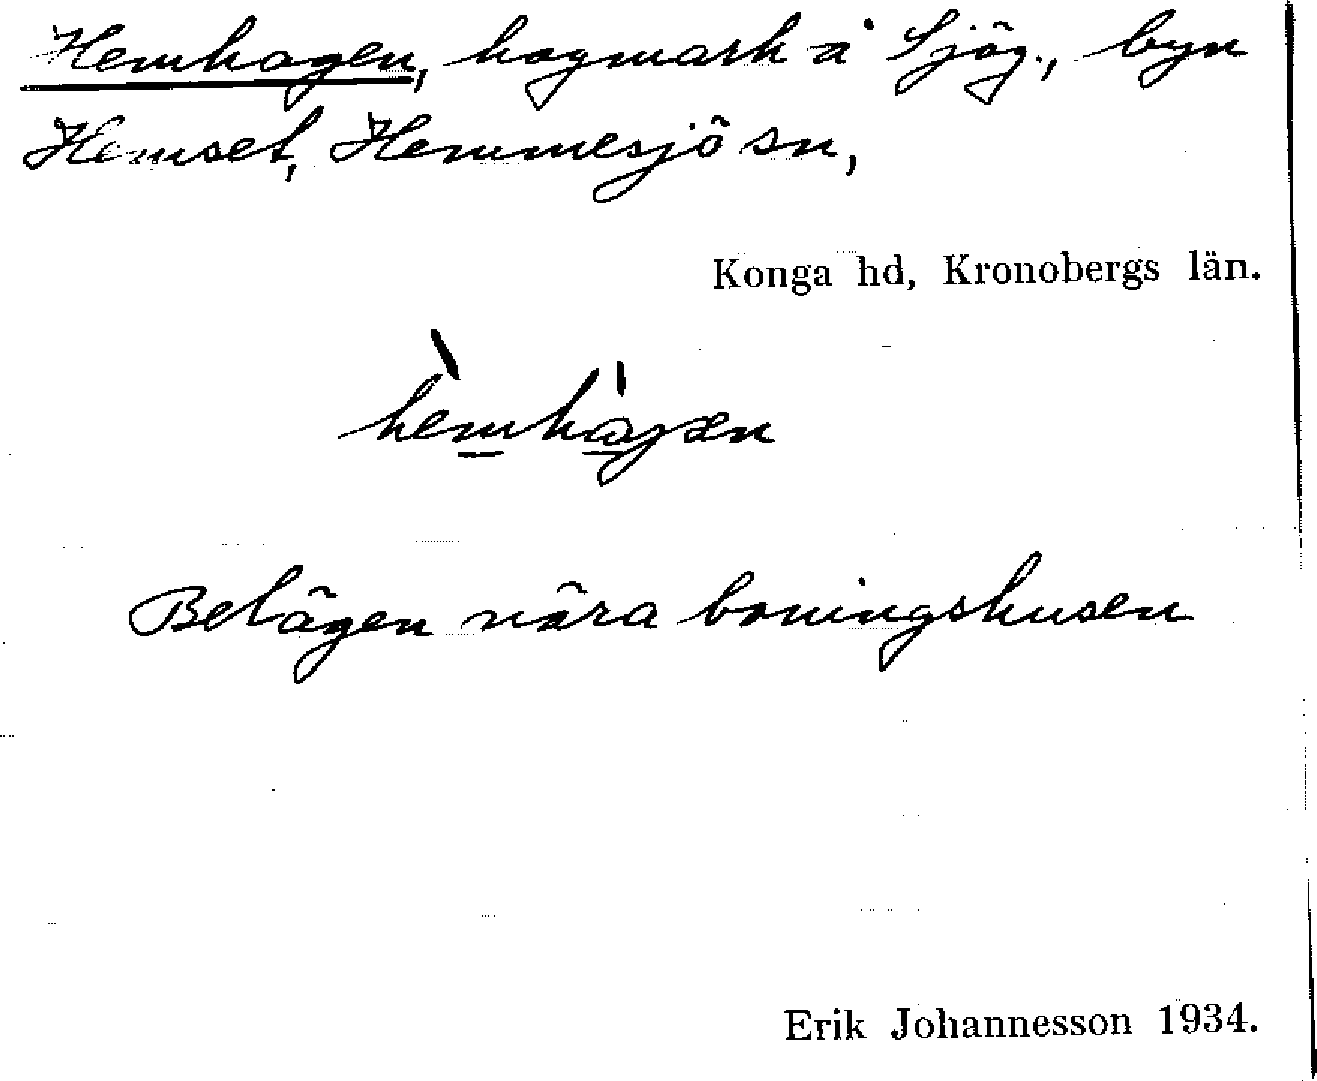 Hemhagen, hagmark å Sjög., byn
Hemset, Hemmesjö sn,
Konga hd, Kronobergs län.
hemhagen
Belägen nära boningshusen
Erik Johannesson 1934.